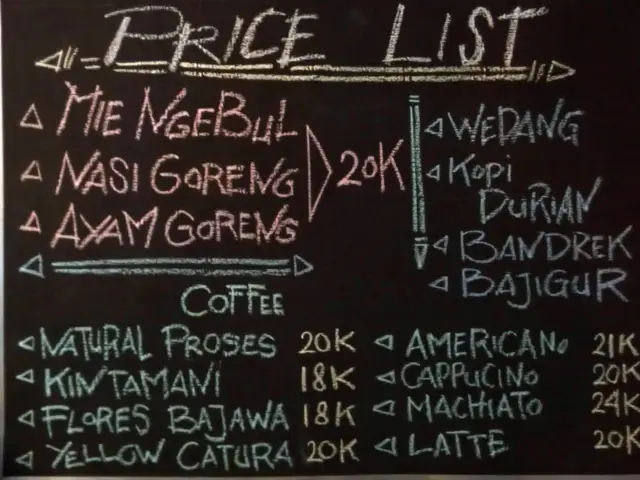 PRICE LIST
MIE NGEBUL
NASI GORENG
AYAM GORENG
20K
WEDANG
KOPI
DURIAN
BANDREK
BAJIGUR
COFFEE
NATURAL PROSES 20K
KINTAMANI 18K
FLORES BAJAWA 18K
YELLOW CATURA 20K
AMERICANO 21K
CAPPUCINO 20K
MACHIATO 24K
LATTE 20K